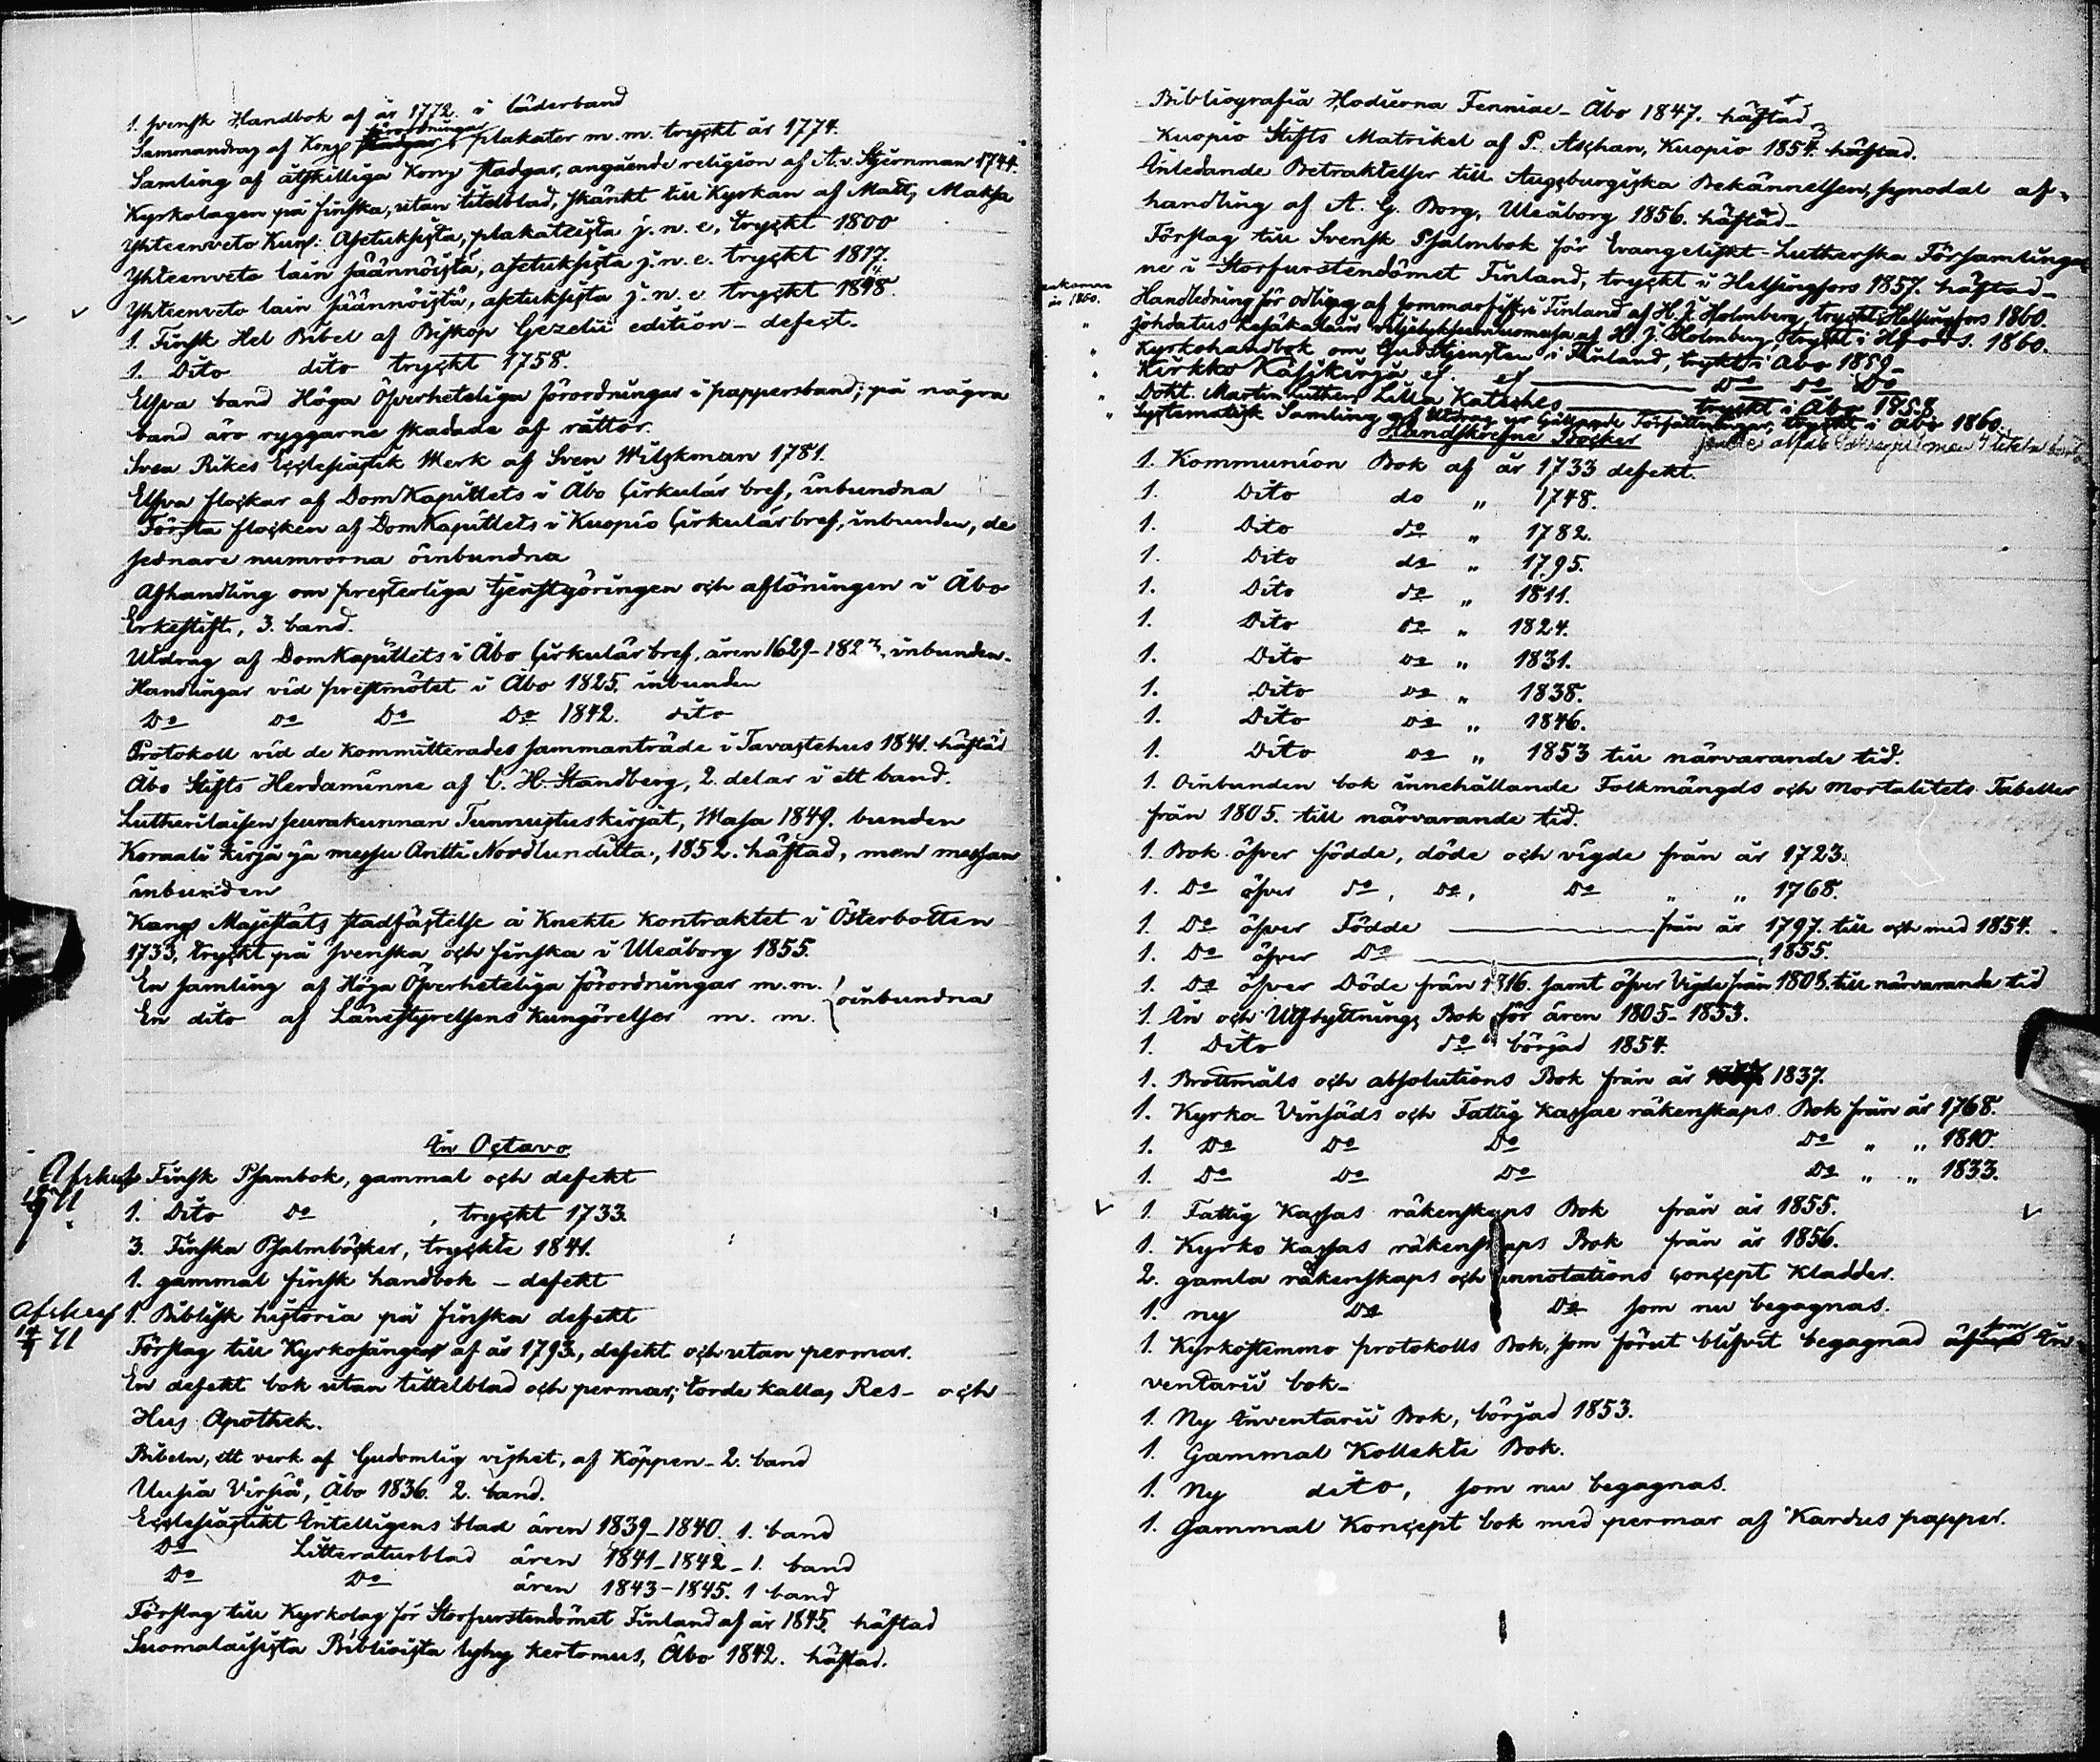 1. svensk Handbok af år 1772. i läderband
Sammandrag af Kong förordningar, plakater m.m. tryckt år 1774.
Samling af åtskilliga Kong stadgar, angående religion af A. v. Stjernman 1744.
Kyrkolagen på finska, utan titelblad, skänkt till Kyrkan af Matts Maksa
Yhteenveto Kunl. Asetuksista, plakateista j. n. e. tryckt 1800
Yhteenveto lain säännöistä, asetuksista j. n. e. tryckt 1817.
Yhteenveto lain säännöistä, asetuksista j. n. e tryckt 1848.
1. Finsk Hel Bibel af Biskop Gezelii edition - defect.
1. Dito dito tryckt 1758.
Elfva band Höga Öfverheteliga förordningar i pappersband; på några
band äro ryggarne skadade af råttor.
Svea Rikes Ecclesiastik Werk af Sven Wilskman 1781.
Elfva flockar af DomKapitlets i Åbo Cirkulär bref, inbundna
Första flocken af DomKapitlets i Kuopio Cirkulärbref, inbunden, de
sednare numrorna oinbundna
Afhandling om presterliga tjenstgöringen och aflöningen i Åbo
Erkestift, 3. band.
Utdrag af DomKapitlets i Åbo Cirkulär bref, åren 1629-1823, inbunden.
Handlingar vid prestmötet i Åbo 1825. inbunden
Do Do Do Do 1842. dito
Protokoll vid de Kommitterades sammanträde i Tavastehus 1841. häftad
Åbo Stifts Herdaminne af C. H. Strandberg, 2. delar i ett band.
Lutherilaisen seurakunnan Tunnustuskirjat, Wasa 1849. bunden
Koraali Kirja ja messu Antti Nordlundilta, 1852. häftad, men messan
inbunden
Kongl Majestäts stadfästelse å Knekte Kontraktet i Österbotten
1733, tryckt på svenska och finska i Uleåborg 1855.
En samling af Höga Öfverhetliga förordningar m. m. } oinbundna
En dito af Länestyrelsens Kungörelser m. m.
In Octavo
1. Finsk Psambok, gammal och defekt
1. Dito Do, tryckt 1733.
3. Finska Psalmböcker, tryckte 1841.
1. gammal finsk handbok - defekt
1. Biblisk historia på finska defekt
Förslag till Kyrkosånger af år 1793, defekt och utan permar.
En defekt bok utan tittelblad och permar; torde kallas Res- och
Hus Apothek.
Bibeln, ett verk af Gudomlig vishet, af Köppen - 2. band
Uusia Virsiä, Åbo 1836. 2. band.
Ecclesiastikt Intelligens blad åren 1839-1840. 1. band
Do Litteraturblad åren 1841-1842 - 1. band
Do Do åren 1843-1845. 1 band
Förslag till Kyrkolag för Storfurstendömet Finland af år 1845. häftad
Suomalaisista Biblioista lyhy kertomus, Åbo 1842. häftad.
Bibliografia Hodierna Fenniae - Åbo 1847. häftad
Kuopio Stifts Matrikel af P. Aschan, Kuopio 1854. häftad.
Inledande Betraktelser till Augsburgiska Bekännelsen, synodal af-
handling af A. G. Borg, Uleåborg 1856. häftad
Förslag till Svensk Psalmbok för Evangeliskt-Lutherska Församlingar-
ne i Storfurstendömet Finland, tryckt i Helsingfors 1857. häftad -
Handledning för odling af sommarsik i Finland af H. J. Holmberg, tryckt i Helsingfors 1860.
af H. J. Holmberg, tryckt i Hfors. 1860.
Kyrkohandbok om Gudstjensten i Finland, tryckt i Åbo 1859 -
Kirkko Käsikirja Do Do Do
Dokt. Martin Luthers Lilla Kateches tryckt i Åbo 1858
Systematisk Samling af Utdrag ur Gällande Författningar, tryckt i Åbo 1860.
Handskrefne Böcker
1. Kommunion Bok af år 1733 defekt.
1. Dito do " 1748.
1. Dito do " 1782.
1. Dito do " 1795.
1. Dito do " 1811.
1. Dito do " 1824.
1. Dito do " 1831.
1. Dito do " 1838.
1. Dito do " 1846.
1. Dito do " 1853 till närvarande tid.
1. Oinbunden bok innehållande Folkmängds och Mortalitets Tabeller
från 1805. till närvarande tid.
1. Bok öfver födde, döde och vigde från år 1723.
1. Do öfver do, do, Do " " 1768.
1. Do öfver Födde från år 1797. till och med 1854.
1. Do öfver Do 1855.
1. Do öfver Döde från 1816. samt öfver Vigde från 1808. till närvarande tid
1. In och Utflyttnings Bok för åren 1805-1853.
1. Dito do börjad 1854.
1. Brottmåls och absolutions Bok från år 1837.
1. Kyrko- Vinsäds och Fattig Kassae räkenskaps Bok från år 1768.
1. Do Do Do Do " " 1810.
1. Do Do Do Do " " 1833.
1 Fattig Kassas räkenskaps Bok från år 1855.
1. Kyrko Kassas räkenskaps Bok från år 1856.
2. gamla räkenskaps och annotations concept Kladder.
1. ny Do Do som nu begagnas.
1. Kyrkostemmo protokolls Bok, som förut blifvit begagnad som In-
ventarii bok -
1. Ny Inventarii Bok, börjad 1853.
1. Gammal Kollekte Bok.
1. Ny dito, som nu begagnas.
1. Gammal Koncept bok med permar af Kardus papper.